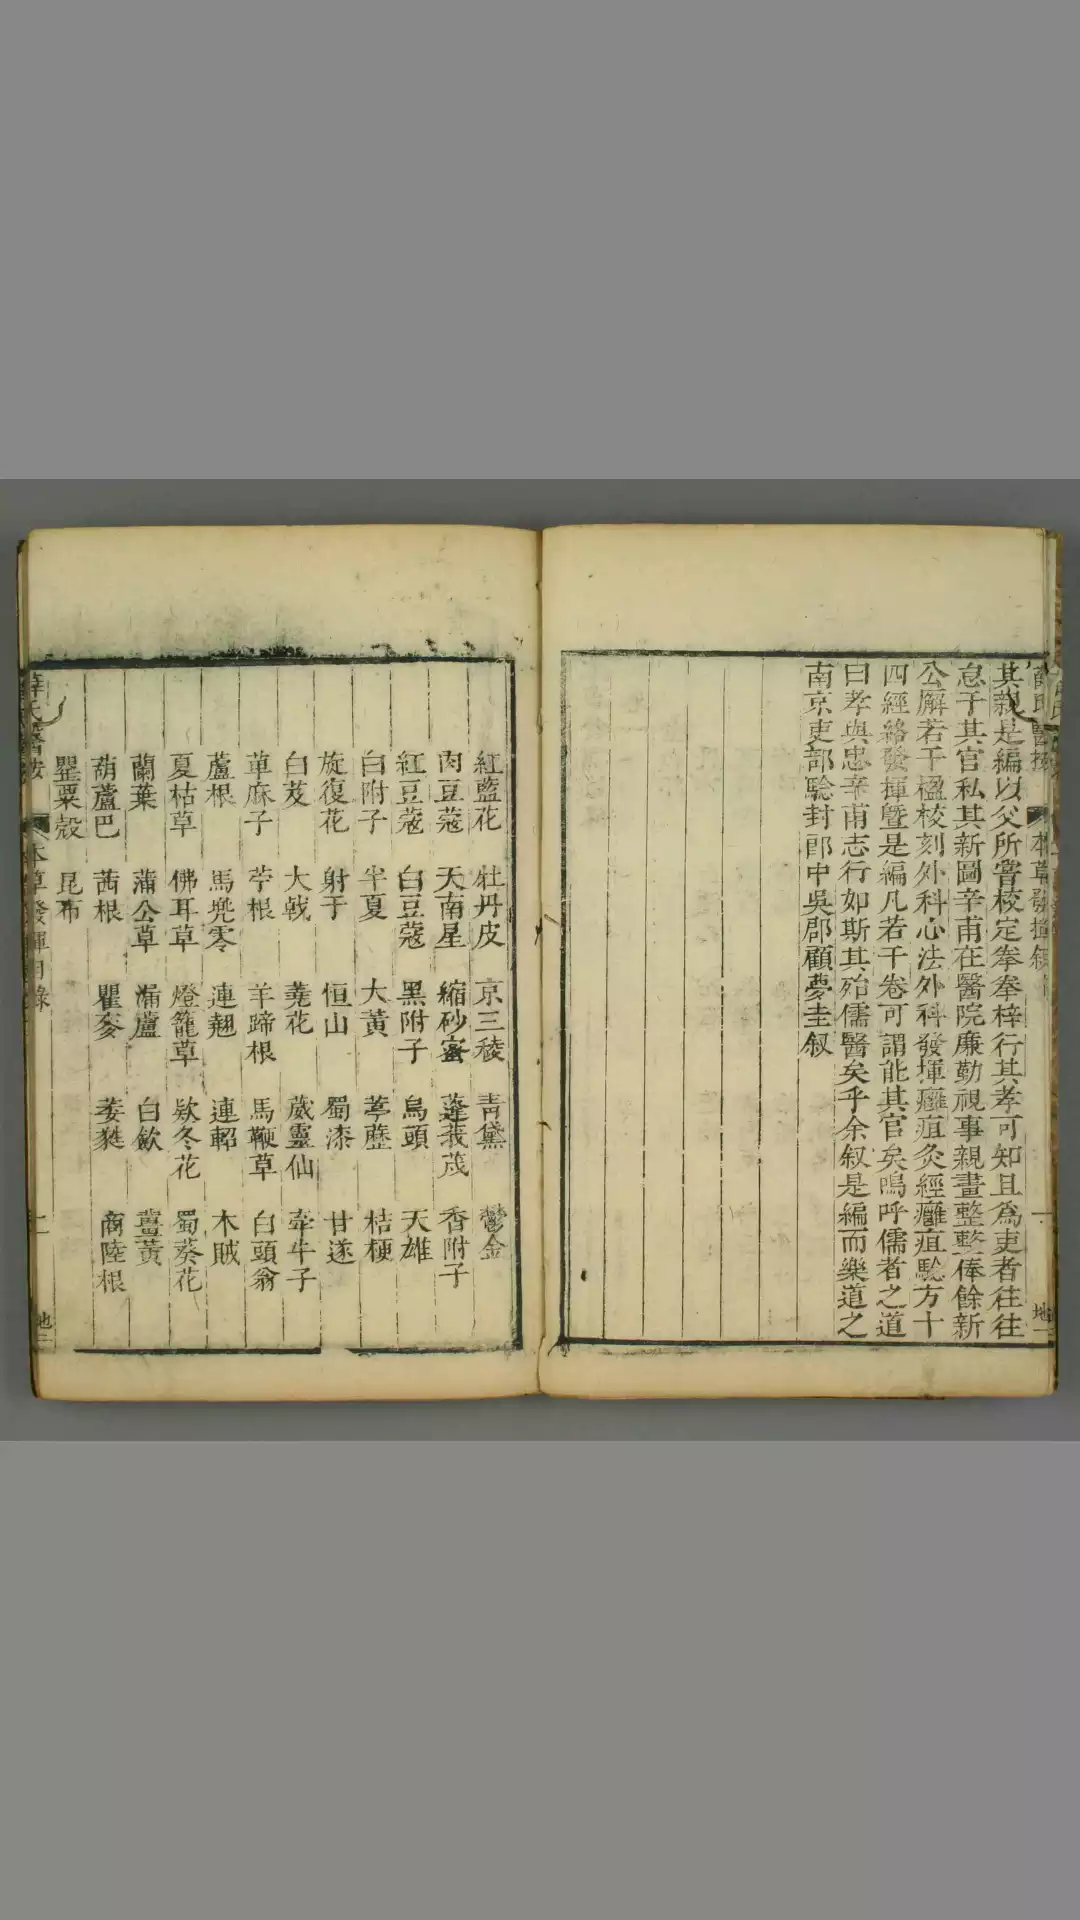 其親是編以父所嘗校定奉奉梓行其孝可知且爲吏者往往
息于其官私其新圖辛甫在醫院廉勤視事親畫整整俸餘新
公廨若干楹校刻外科心法外科發揮癰疽灸經癰疽驗方十
四經絡發揮暨是編凡若干卷可謂能其官矣嗚呼儒者之道
曰孝與忠辛甫志行如斯其殆儒醫矣乎余叙是編而樂道之
南京吏部驗封郎中吳郡顧夢圭叙
紅藍花 牡丹皮 京三稜 青黛 鬱金
肉豆蔻 天南星 縮砂蜜 蓬莪茂 香附子
紅豆蔻 白豆蔻 黑附子 烏頭 天雄
白附子 半夏 大黃 葶藶 桔梗
旋復花 射干 恒山 蜀漆 甘遂
白芨 大戟 蕘花 葳靈仙 牽牛子
萆麻子 苧根 羊蹄根 馬鞭草 白頭翁
蘆根 馬兜零 連翹 連軺 木賊
夏枯草 佛耳草 燈籠草 欵冬花 蜀葵花
蘭葉 蒲公草 漏蘆 白歛 薑黃
葫蘆巴 茜根 瞿麥 萎蕤 商陸根
罌粟殼 昆布
薛氏醫按 本草發揮目錄 二 地二